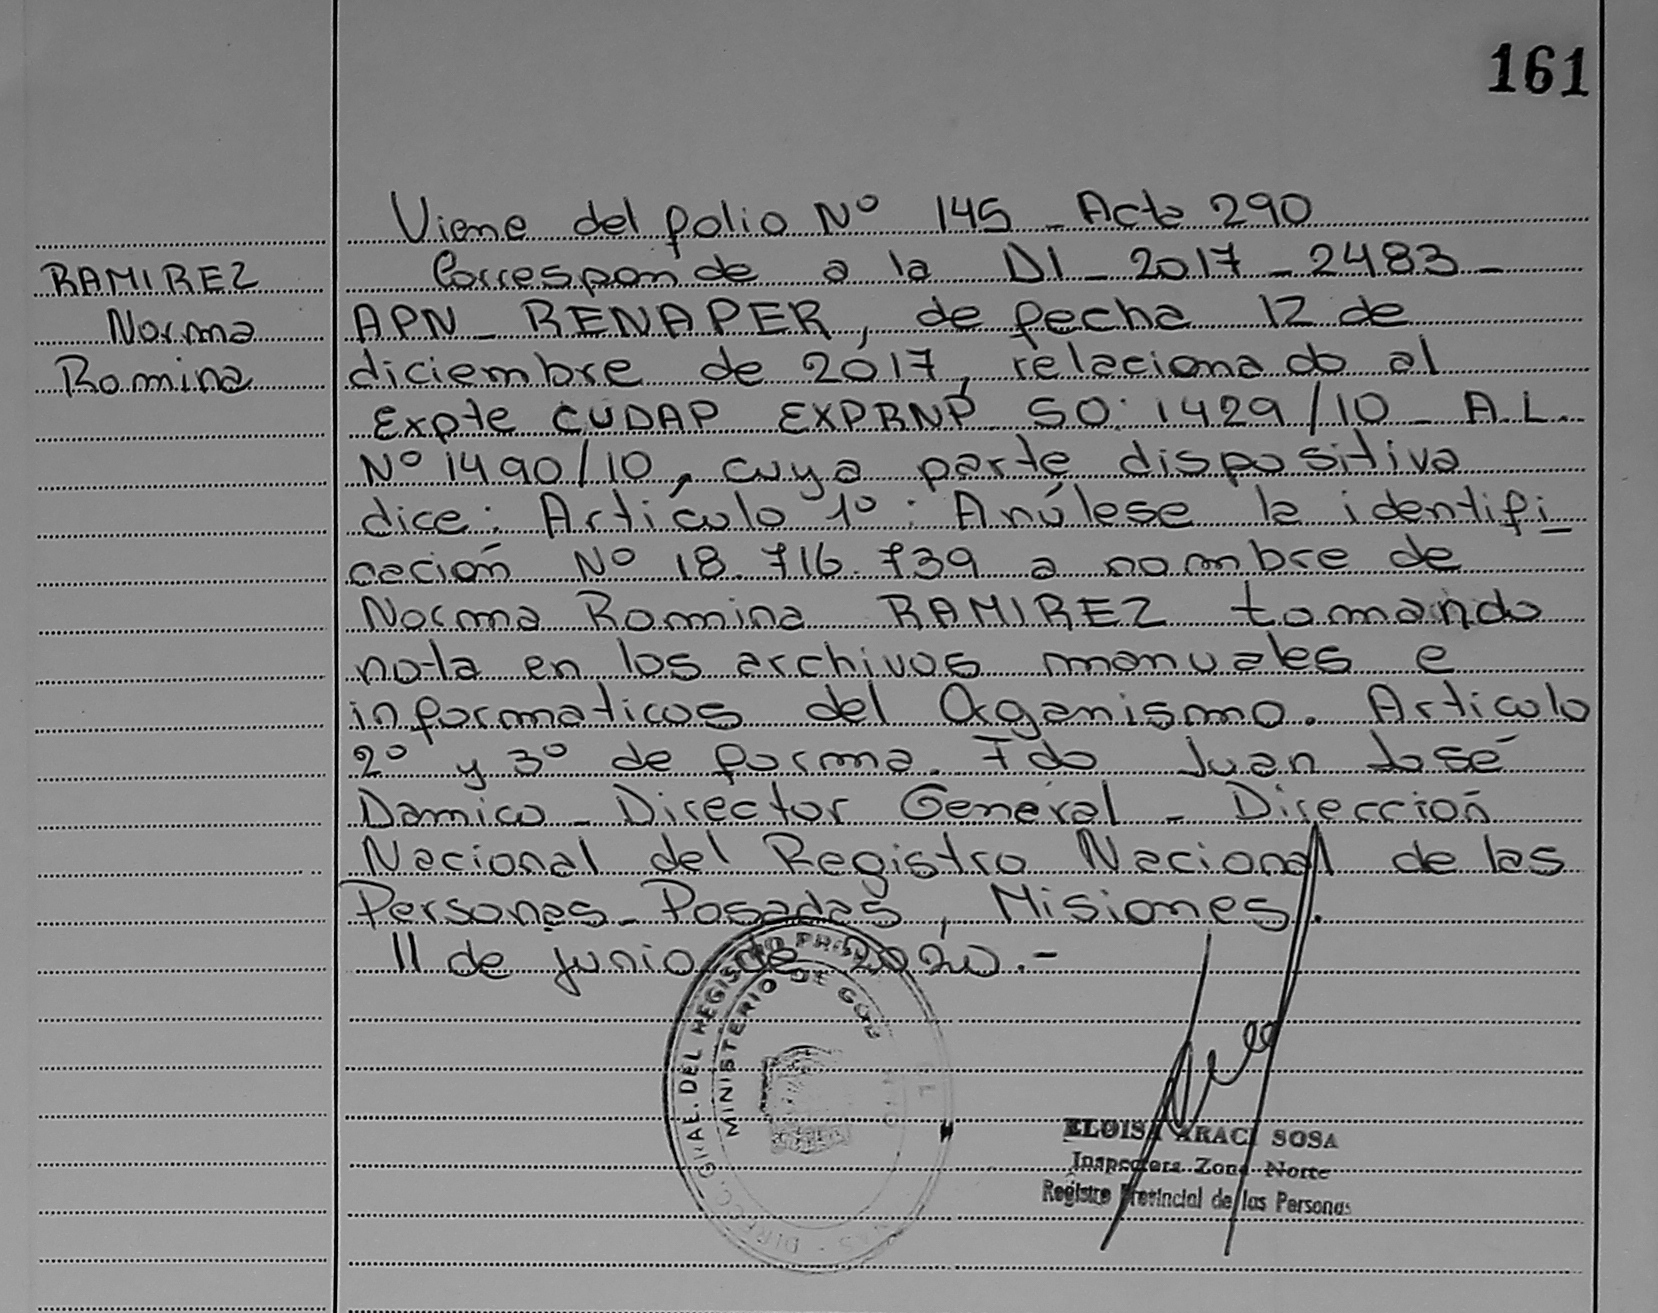 161
RAMIREZ
Norma
Romina
Viene del folio Nº 145 - Acta 290
Corresponde a la DI - 2017 - 2483 -
APN - RENAPER, de fecha 12 de
diciembre de 2017, relacionado al
Expte CUDAP EXPRNP SO: 1429/10 - A.L.
Nº 1490/10, cuya parte dispositiva
dice: Artículo 1º: Anúlese la identifi-
cación Nº 18.716.739 a nombre de
Norma Romina RAMIREZ tomando
nota en los archivos manuales e
informaticos del Oganismo. Articulo
2º y 3º de forma. Fdo Juan José
Damico - Director General - Dirección
Nacional del Registro Nacional de las
Personas - Posadas, Misiones.
11 de junio de 2020.-
DIRECC. GRAL. DEL REGISTRO
MINISTERIO DE
ELOISA ARACI SOSA
Inspectora Zona Norte
Registro Provincial de las Personas